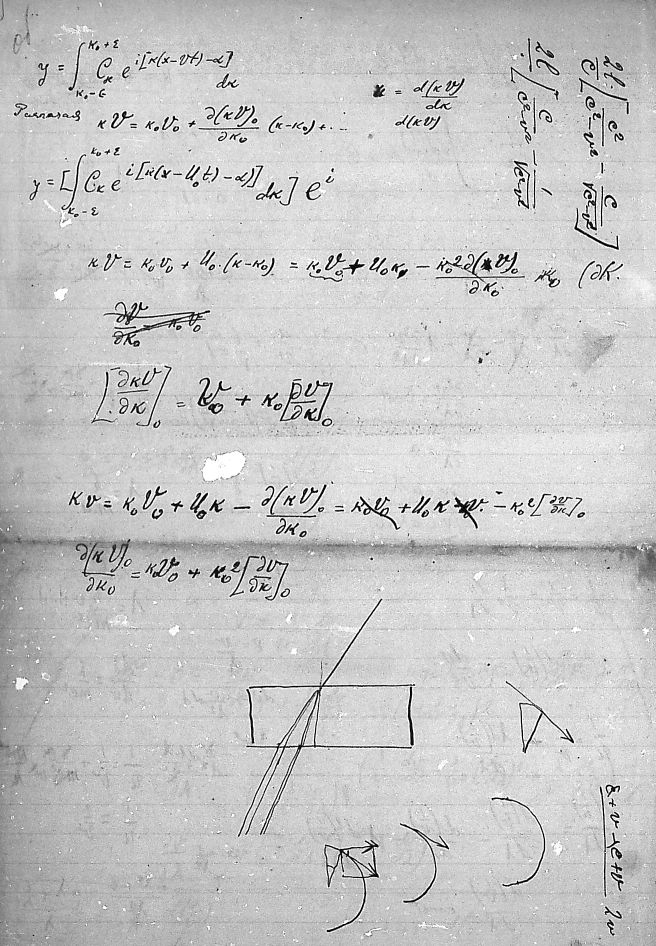 y = ∫_{κ₀-ε}^{κ₀+ε} C_κ e^{i[κ(x-vt)-α]} dκ
u = d(κv)/dκ
d(κv)
κv = κ₀v₀ + ∂(κv)₀/∂κ₀ (κ-κ₀) + ...
y = [∫_{κ₀-ε}^{κ₀+ε} C_κ e^{i[κ(x-u₀t)-α)]} dκ] e^{i}
κv = κ₀v₀ + u₀·(κ-κ₀) = κ₀v₀ + u₀κ, - κ₀²∂(κv)₀/∂κ₀ (∂κ.
∂v/∂κ₀ κ₀v₀
[∂κv/∂κ]₀ = v₀ + κ₀[∂v/∂κ]₀
κv = κ₀v₀ + u₀κ - ∂(κv)₀/∂κ₀ = κ₀v₀ + u₀κ - κ₀v₀ - κ₀²[∂v/∂κ]₀
∂(κv)₀/∂κ₀ = κ₀v₀ + κ₀²[∂v/∂κ]₀
2l/c [c²/(c²-v²) - c/√(c²-v²)]
2l [c/(c²-v²) - 1/√(c²-v²)]
c+v-c+v
2v